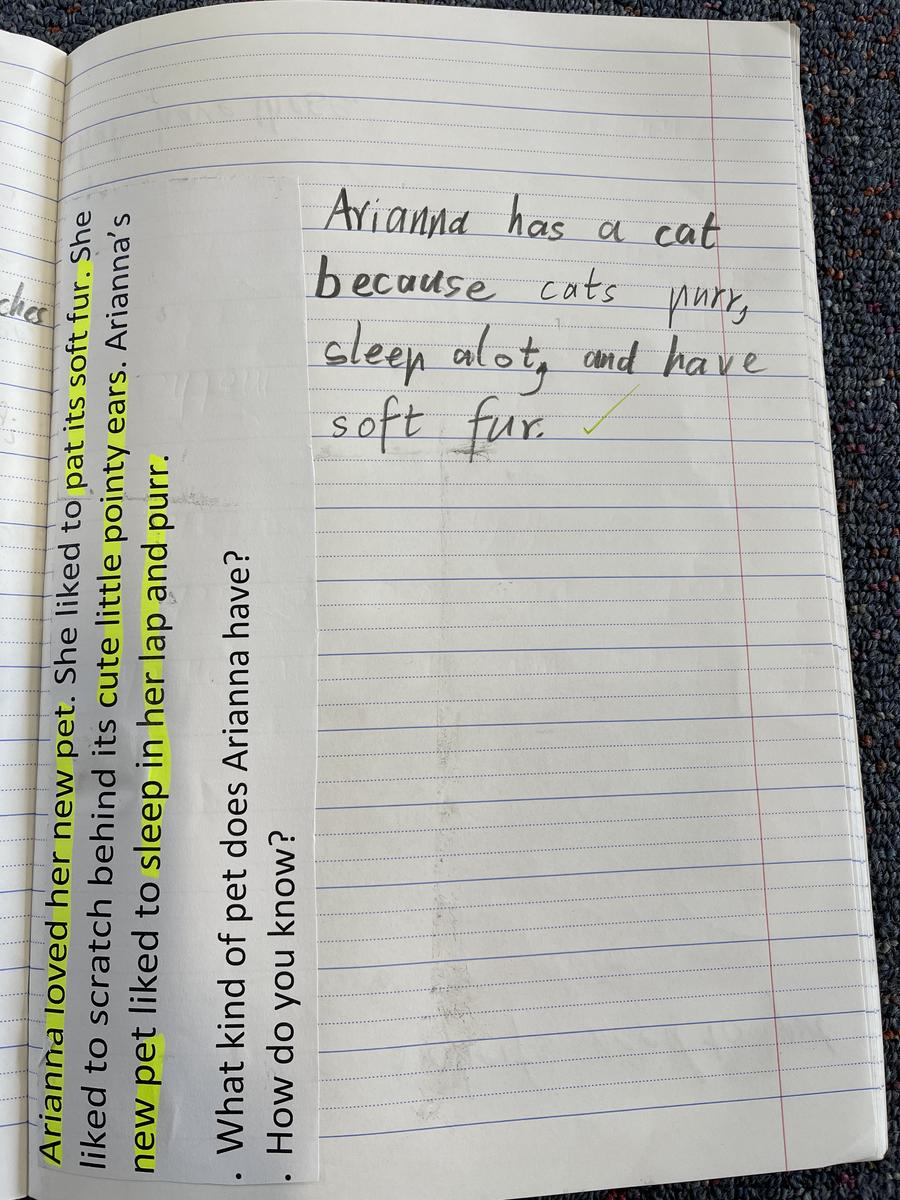 Arianna loved her new pet. She liked to pat its soft fur. She
liked to scratch behind its cute little pointy ears. Arianna's
new pet liked to sleep in her lap and purr.
• What kind of pet does Arianna have?
• How do you know?
Arianna has a cat
because cats purr,
sleep alot, and have
soft fur.
ches